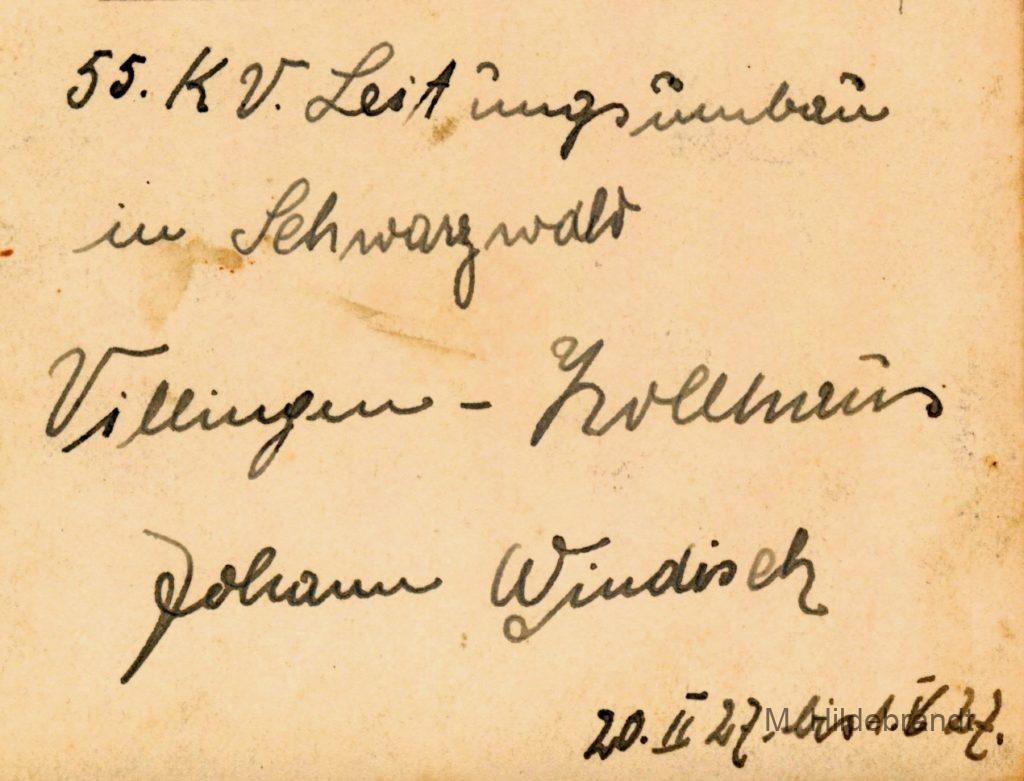 55. KV. Leitungsumbau
in Schwarzwald
Villingen - Zollhaus
Johann Windisch
20. II 27. bis 1. V 27.
M. Hildebrandt